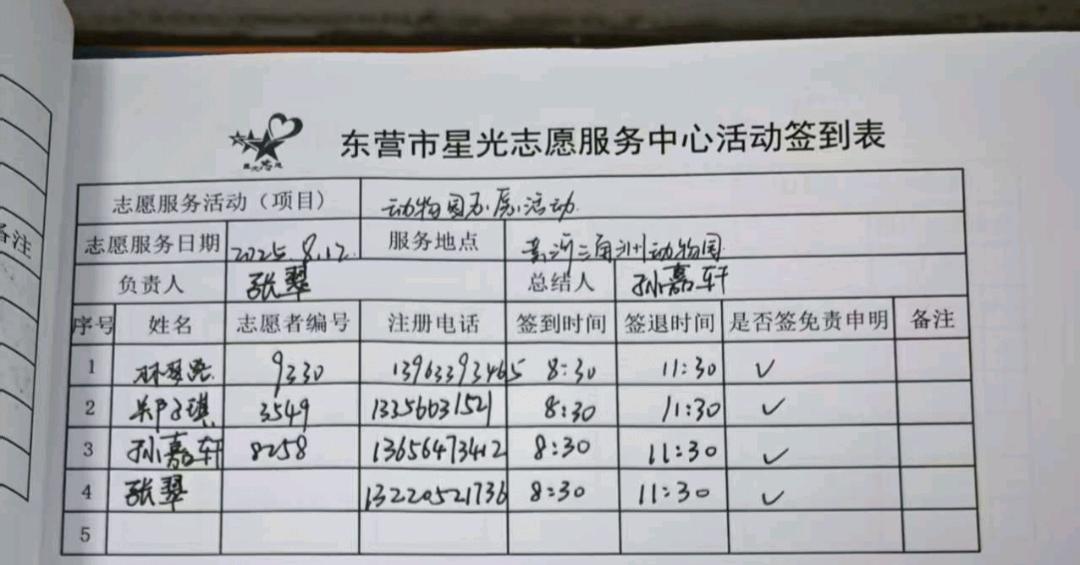 备注
星光志愿
东营市星光志愿服务中心活动签到表
志愿服务活动（项目） 动物园志愿活动
志愿服务日期 2025.8.12. 服务地点 黄河三角洲动物园
负责人 张翠 总结人 孙嘉轩
序号 姓名 志愿者编号 注册电话 签到时间 签退时间 是否签免责申明 备注
1 9330 13963393465 8:30 11:30 ✓
2 3549 13356631521 8:30 11:30 ✓
3 孙嘉轩 8258 13656473412 8:30 11:30 ✓
4 张翠 13220521736 8:30 11:30 ✓
5